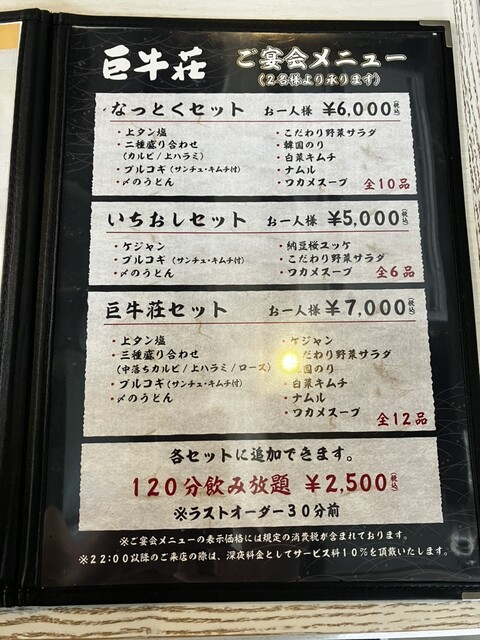 巨牛荘 ご宴会メニュー
(2名様より承ります)
なっとくセット お一人様 ¥6,000(税込)
・上タン塩
・二種盛り合わせ
(カルビ/上ハラミ)
・プルコギ(サンチュ・キムチ付)
・〆のうどん
・こだわり野菜サラダ
・韓国のり
・白菜キムチ
・ナムル
・ワカメスープ
全10品
いちおしセット お一人様 ¥5,000(税込)
・ケジャン
・プルコギ(サンチュ・キムチ付)
・〆のうどん
・納豆桜ユッケ
・こだわり野菜サラダ
・ワカメスープ
全6品
巨牛荘セット お一人様 ¥7,000(税込)
・上タン塩
・三種盛り合わせ
(中落ちカルビ/上ハラミ/ロース)
・プルコギ(サンチュ・キムチ付)
・〆のうどん
・ケジャン
こだわり野菜サラダ
韓国のり
・白菜キムチ
・ナムル
・ワカメスープ
全12品
各セットに追加できます。
120分飲み放題 ¥2,500(税込)
※ラストオーダー30分前
※ご宴会メニューの表示価格には規定の消費税が含まれております。
※22:00以降のご来店の際は、深夜料金としてサービス料10%を頂戴いたします。